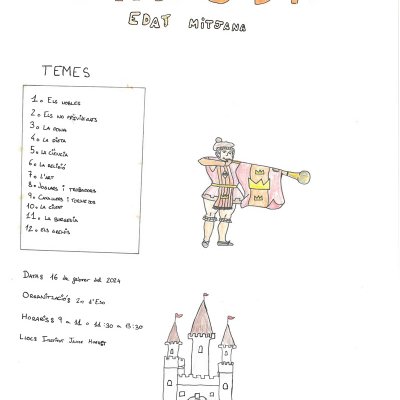 EDAT MITJANA
TEMES
1. ELS NOBLES
2. ELS NO PRIVILEGIATS
3. LA DONA
4. LA DIETA
5. LA CIÈNCIA
6. LA RELIGIÓ
7. L'ART
8. JOGLARS I TROBADORS
9. CAVALLERS I TORNEJOS
10. LA CIUTAT
11. LA BURGESIA
12. ELS GREMIS
DATA: 16 de gener del 2024
ORGANITZACIÓ: 2n d'ESO
HORARIS: 9 a 11 o 11:30 a 13:30
LLOC: INSTITUT JAUME